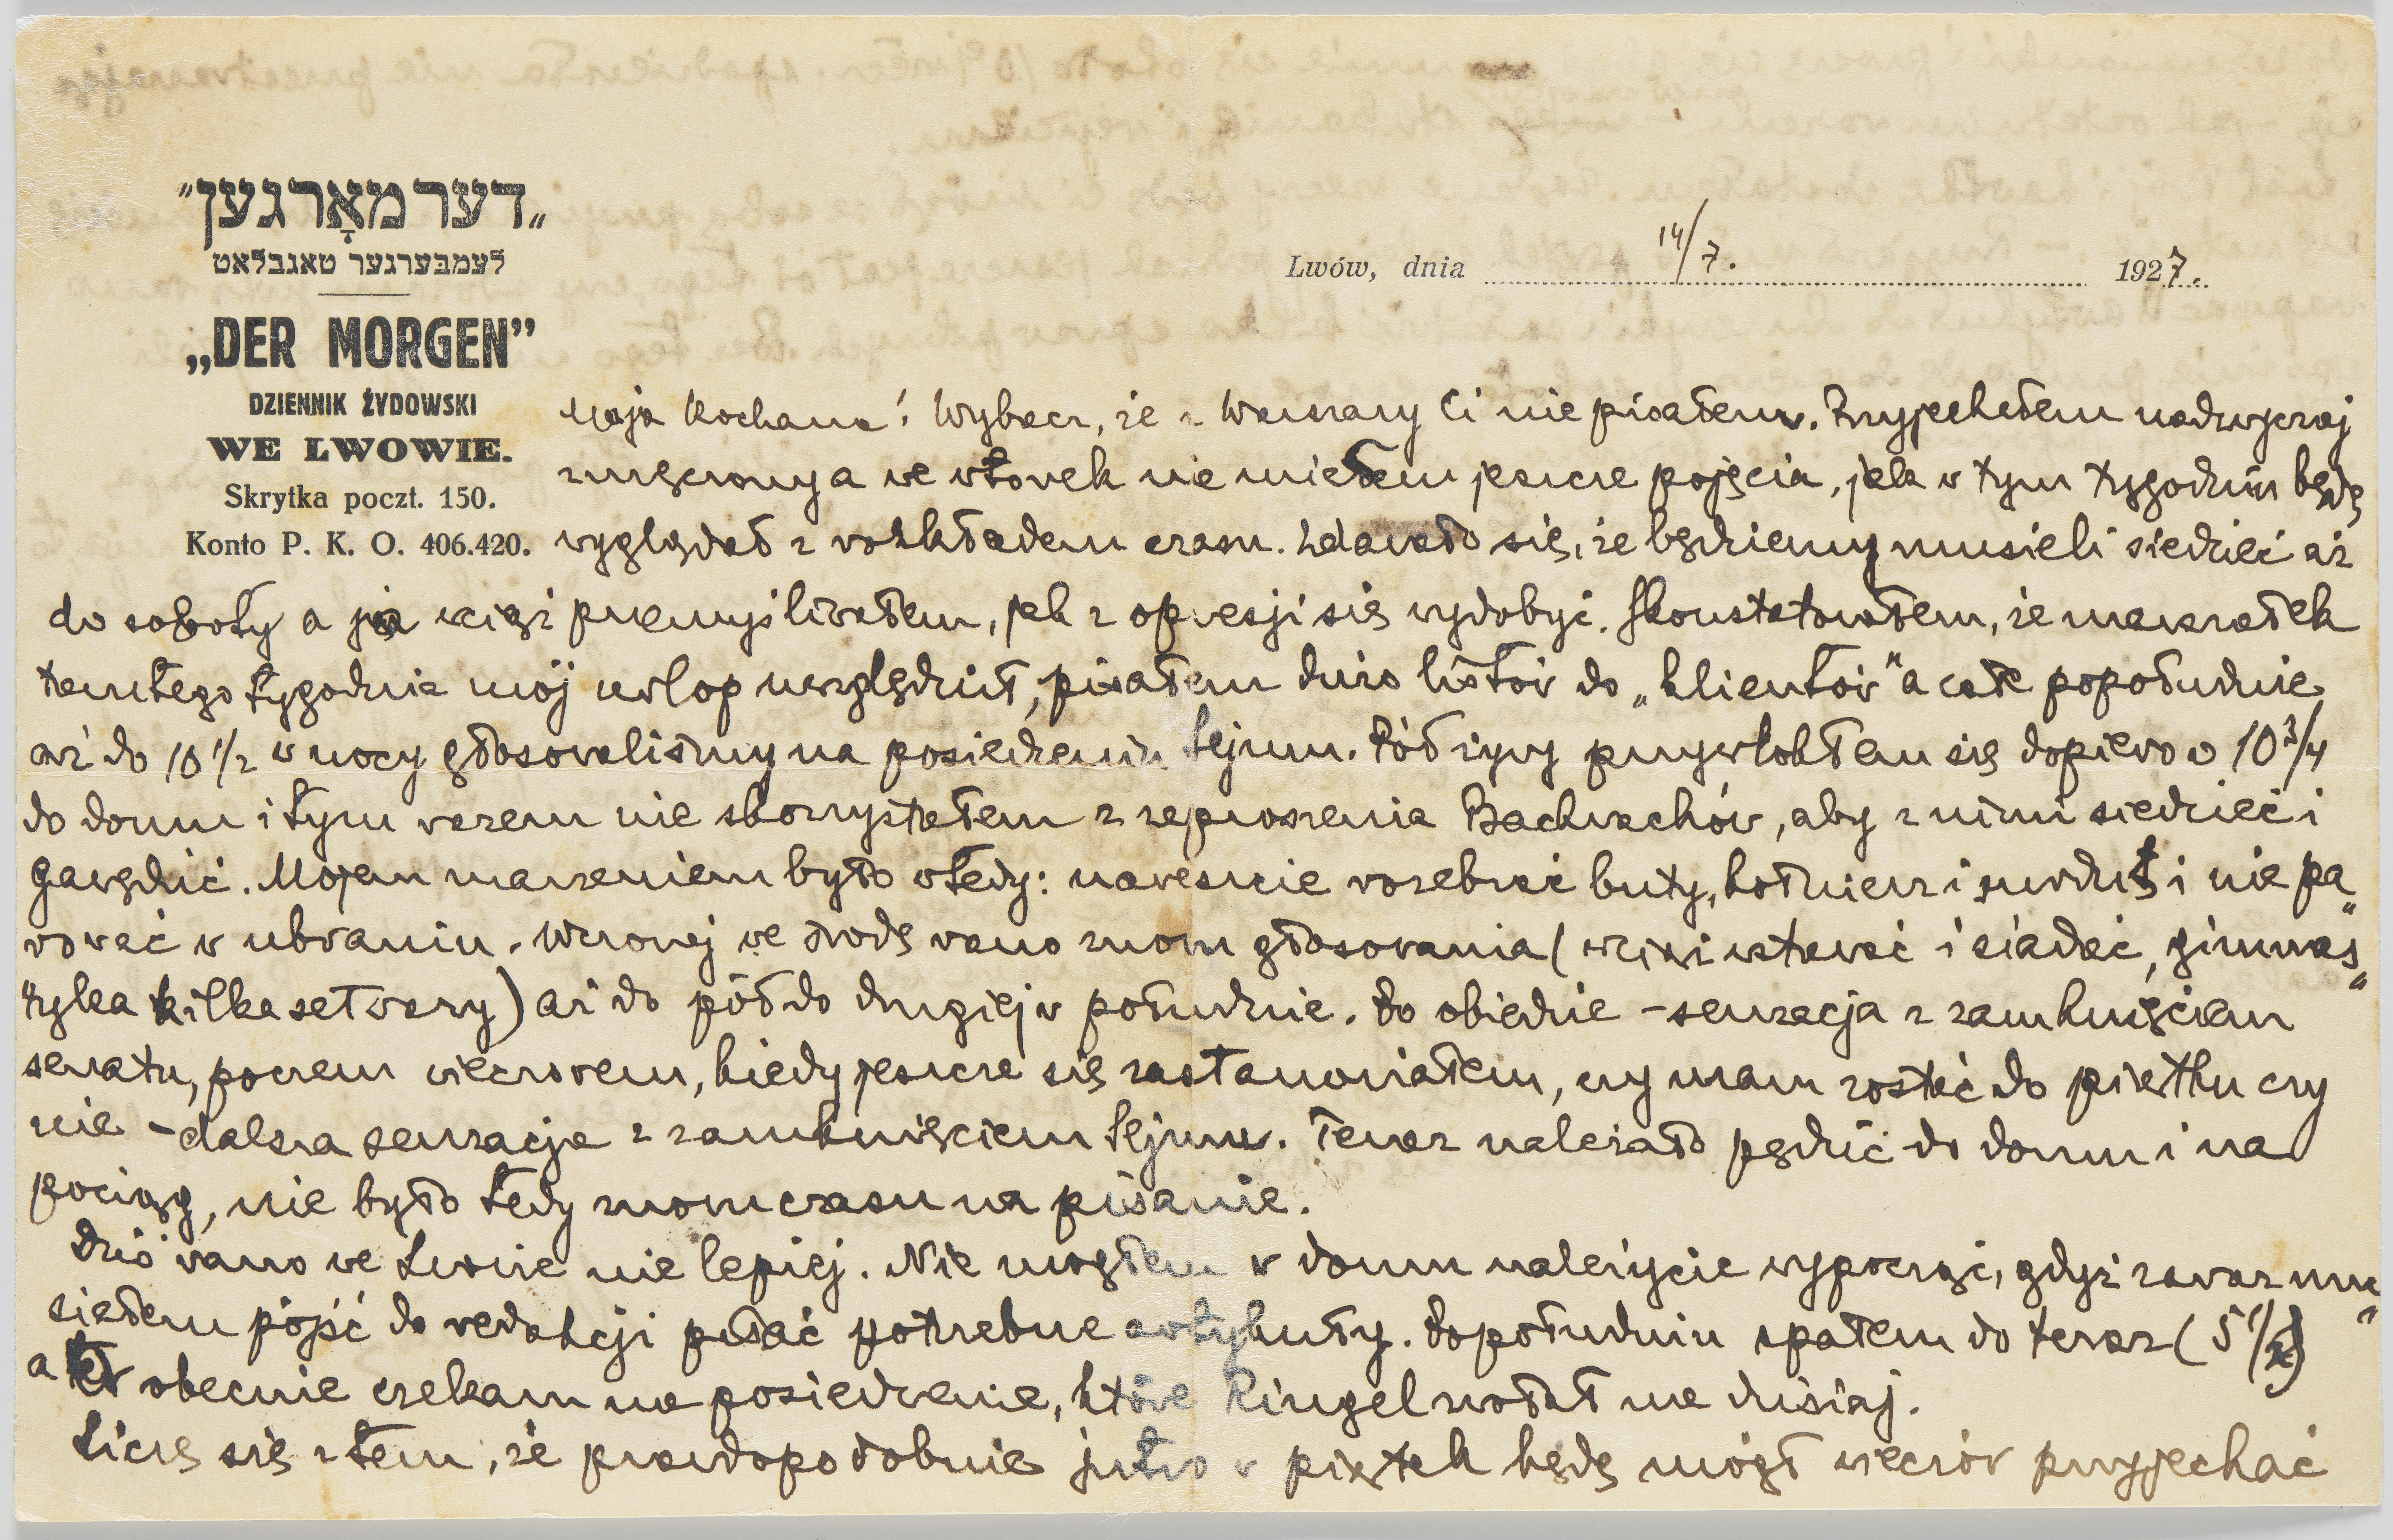 „דער מאָרגען”
לעמבערגער טאגבלאט
„DER MORGEN”
DZIENNIK ŻYDOWSKI
WE LWOWIE.
Skrytka poczt. 150.
Konto P. K. O. 406.420.
Lwów, dnia 14/7. 1927.
Moja Kochana! Wybacz, że z Warszawy Ci nie pisałem. Przyjechałem nadzwyczaj
zmęczony a we wtorek nie miałem jeszcze pojęcia, jak w tym tygodniu będę
wyglądał z rozkładem czasu. Zdawało się, że będziemy musieli siedzieć aż
do soboty a ja wciąż przemyśliwałem, jak z opresji się wydobyć. Skonstatowałem, że marszałek
tamtego tygodnia mój urlop uwzględnił, pisałem dużo listów do „klientów” a całe popołudnie
aż do 10 1/2 w nocy głosowaliśmy na posiedzeniu Sejmu. Pół żywy przywlokłem się dopiero o 10 3/4
do domu i tym razem nie skorzystałem z zaproszenia Bachrachów, aby z nimi siedzieć i
gawędzić. Mojem marzeniem było wtedy: nareszcie rozebrać buty, kołnierz i surdut i nie pa„
rować w ubraniu. Wczoraj we środę rano znow głosowania (wciąż wstawać i siadać, gimnas„
tyka kilkaset razy) aż do pół do drugiej w południe. Po obiedzie – sensacja z zamknięciem
senatu, poczem wieczorem, kiedy jeszcze się zastanowiałem, czy mam zostać do piątku czy
nie – dalsza sensacja z zamknięciem Sejmu. Teraz należało pędzić do domu i na
pociąg, nie było tedy znow czasu na pisanie.
Dziś rano we Lwowie nie lepiej. Nie mogłem w domu należycie wypocząć, gdyż zaraz mu„
siałem pójść do redakcji pisać potrzebne artykuły. Popołudniu spałem do teraz (5 1/2)
a obecnie czekam na posiedzenie, które Ringel zwołał na dzisiaj.
Liczę się z tem, że prawdopodobnie jutro w piątek będę mógł wieczór przyjechać